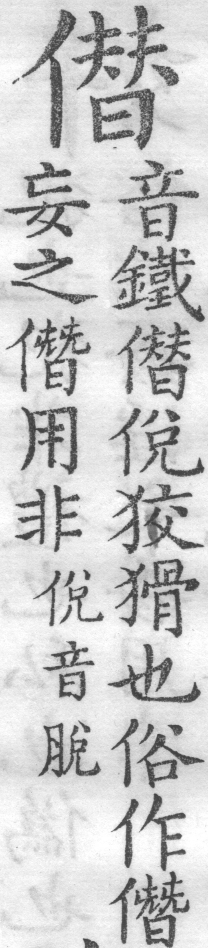 僣
音鐵僣侻狡猾也俗作僭
妄之僭用非侻音脫